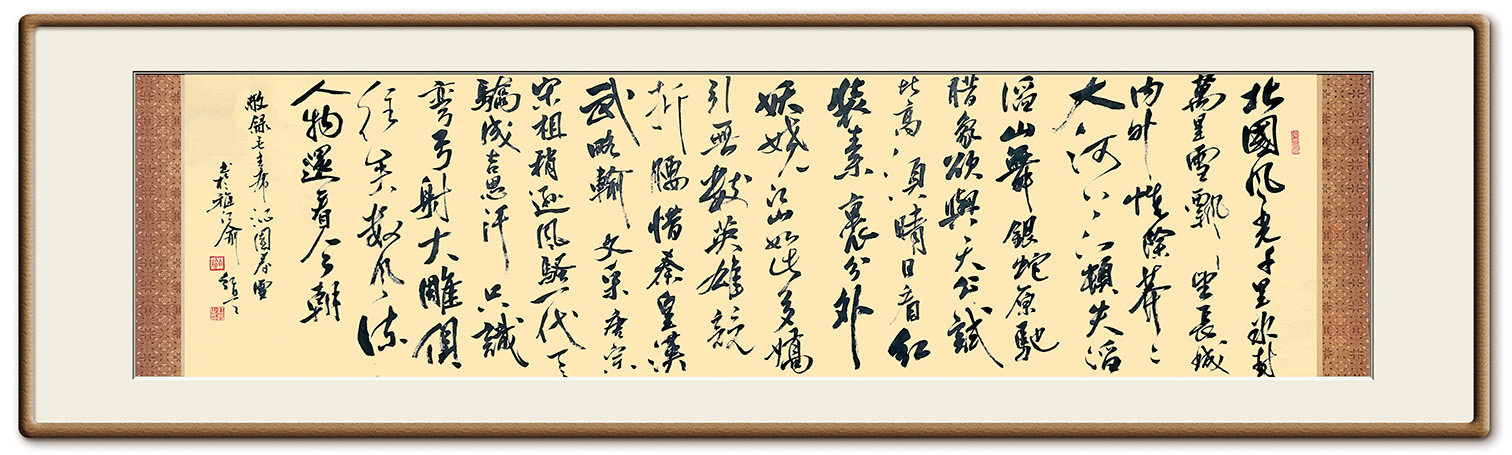 北國风光千里冰封
萬里雪飘望長城
内外惟除莽々
大河上下頓失滔
滔山舞銀蛇原馳
腊象欲與天公試
比高須晴日看红
装素裹分外
妖娆江山如此多嬌
引無数英雄競
折腰惜秦皇漢
武略輸文采唐宗
宋祖稍遜风騷一代天
驕成吉思汗只識
彎弓射大雕俱
往矣数风流
人物還看今朝
敬録毛主席沁園春雪